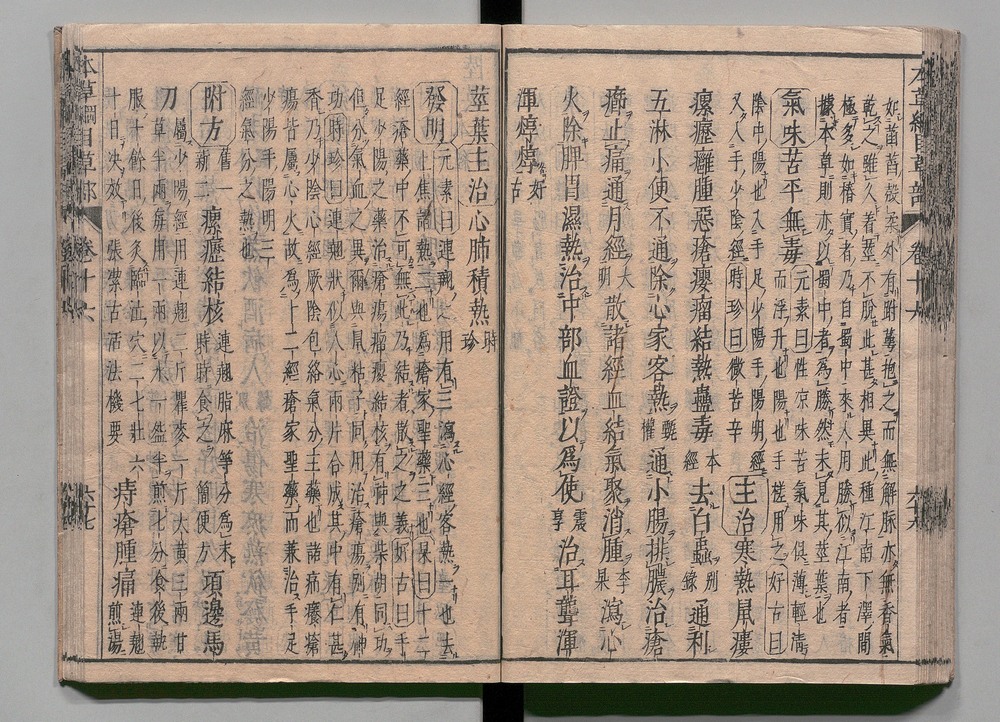 本草綱目草部 卷十六 六十六
如菡萏殻柔外有跗萼抱之而無解脉亦無香氣
乾之雖久着莖不脫此甚相異此種江南下澤間
極多如椿實者乃自蜀中來入用勝似江南者
據本草則亦以蜀中者爲勝然未見其莖葉也
氣味苦平無毒元素曰性凉味苦氣味俱薄輕清
而浮升也陽也手搓用之好古曰
陰中陽也入手足少陽手陽明經
又入手少陰經時珍曰微苦辛主治寒熱鼠瘻
瘰癧癰腫惡瘡癭瘤結熱蠱毒本經去白蟲別錄通利
五淋小便不通除心家客熱甄權通小腸排膿治瘡
癤止痛通月經大明散諸經血結氣聚消腫李杲瀉心
火除脾胃濕熱治中部血證以爲使震亨治耳聾渾
渾焞焞好古
莖葉主治心肺積熱時珍
發明元素曰連翹之用有三瀉心經客熱一也去
上焦諸熱二也爲瘡家聖藥三也杲曰十二
經瘡藥中不可無此乃結者散之之義好古曰手
足少陽之藥治瘡瘍瘤癭結核有神與柴胡同功
但分氣血之異爾與鼠粘子同用治瘡瘍別有神功
時珍曰連翹狀似人心兩片合成其中有仁甚
香乃少陰心經厥陰包絡氣分主藥也諸痛癢瘡
瘍皆屬心火故爲十二經瘡家聖藥而兼治手足
少陽手陽明三
經氣分之熱也
附方舊一新二瘰癧結核連翹脂麻等分爲末時時食之簡便方項邊馬
刀屬少陽經用連翹二斤瞿麥一斤大黃三兩甘
草半兩每用一兩以水一盌半煎七分食後熱
服十餘日後灸臨泣穴二七壯六
十日決效張潔古活法機要痔瘡腫痛連翹煎湯
本草綱目草部 卷十六 六十七